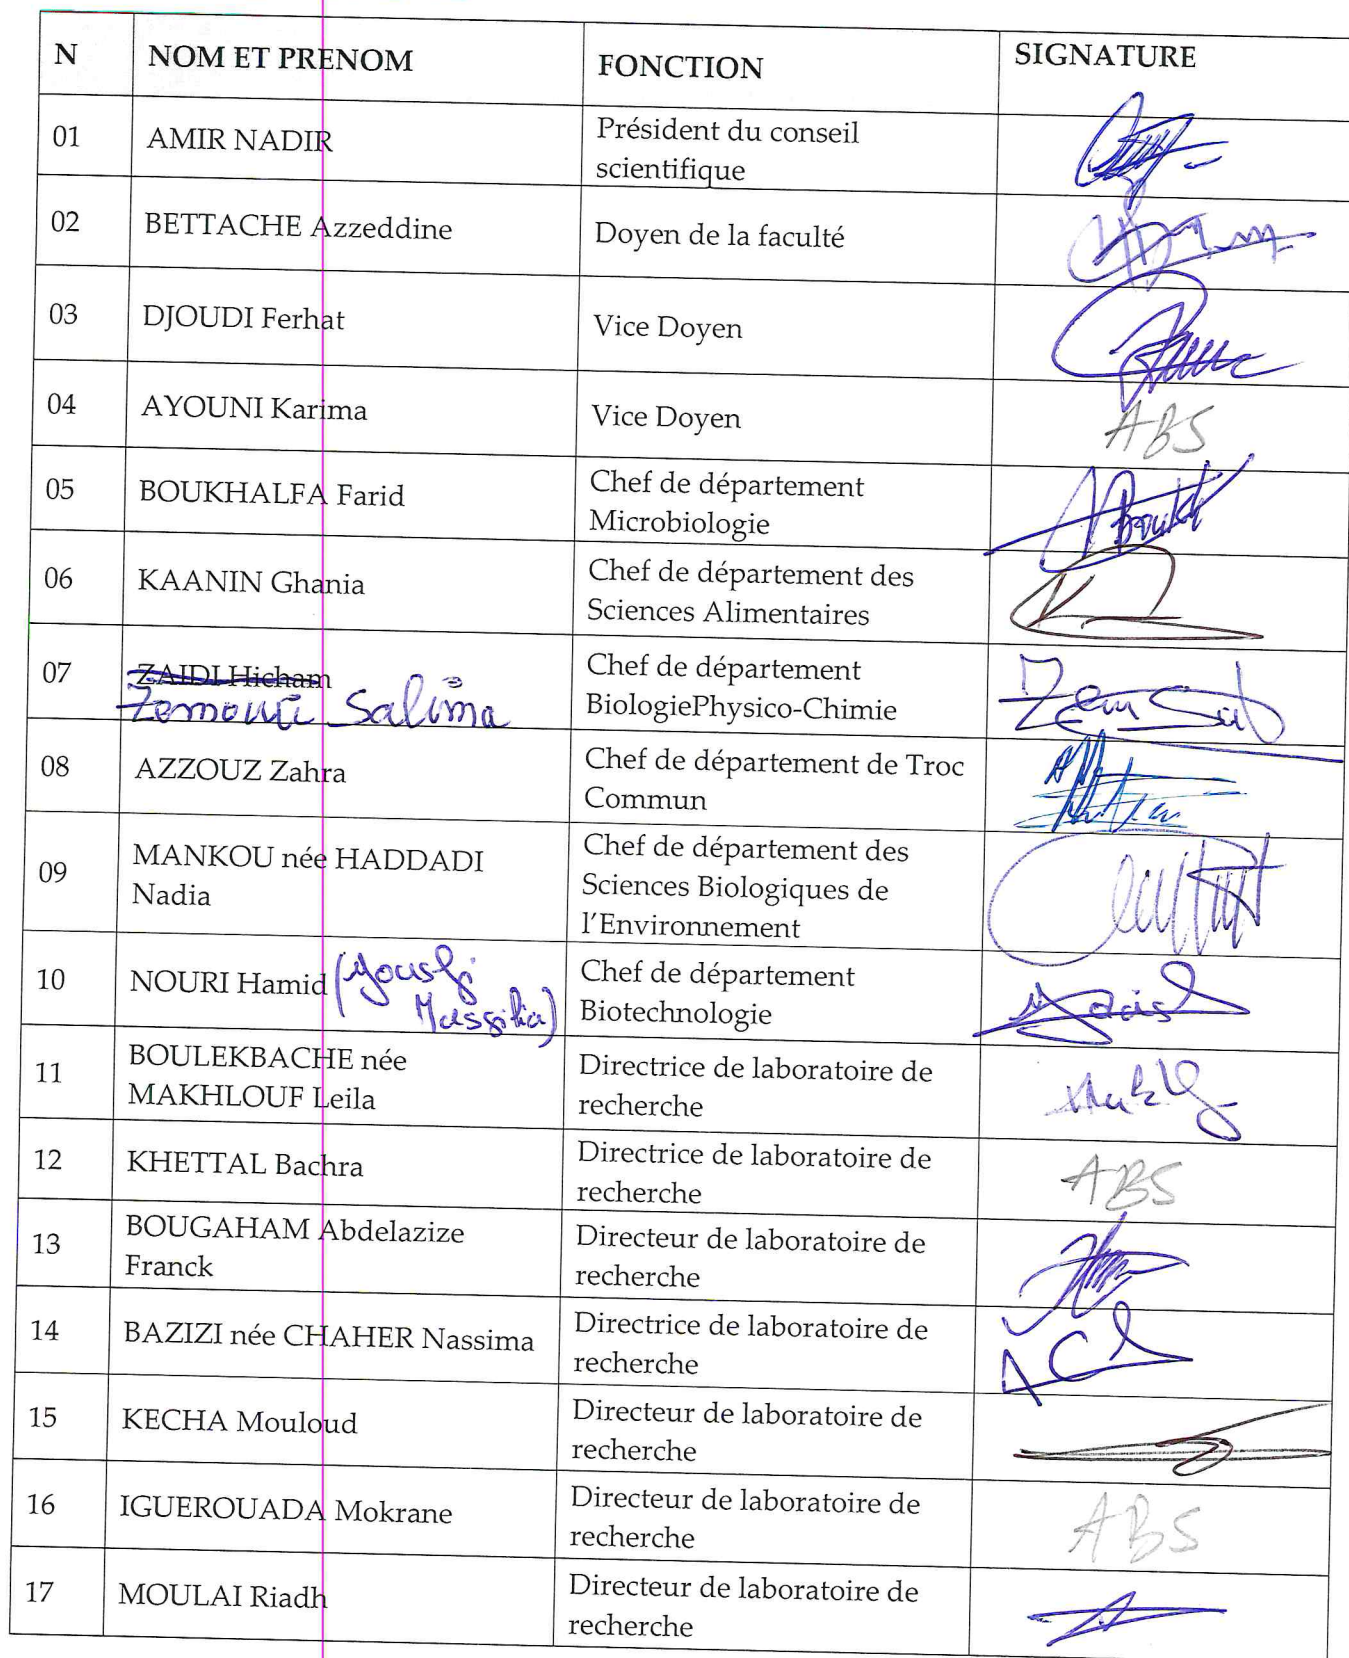 N NOM ET PRENOM FONCTION SIGNATURE
01 AMIR NADIR Président du conseil
scientifique
02 BETTACHE Azzeddine Doyen de la faculté
03 DJOUDI Ferhat Vice Doyen
04 AYOUNI Karima Vice Doyen ABS
05 BOUKHALFA Farid Chef de département
Microbiologie
06 KAANIN Ghania Chef de département des
Sciences Alimentaires
07 ZAIDI Hicham Chef de département
Zemouri Salima BiologiePhysico-Chimie
08 AZZOUZ Zahra Chef de département de Troc
Commun
09 MANKOU née HADDADI Chef de département des
Nadia Sciences Biologiques de
l'Environnement
10 NOURI Hamid (Yousfi Chef de département
Massilia) Biotechnologie
11 BOULEKBACHE née Directrice de laboratoire de
MAKHLOUF Leila recherche
12 KHETTAL Bachra Directrice de laboratoire de ABS
recherche
13 BOUGAHAM Abdelazize Directeur de laboratoire de
Franck recherche
14 BAZIZI née CHAHER Nassima Directrice de laboratoire de
recherche
15 KECHA Mouloud Directeur de laboratoire de
recherche
16 IGUEROUADA Mokrane Directeur de laboratoire de ABS
recherche
17 MOULAI Riadh Directeur de laboratoire de
recherche